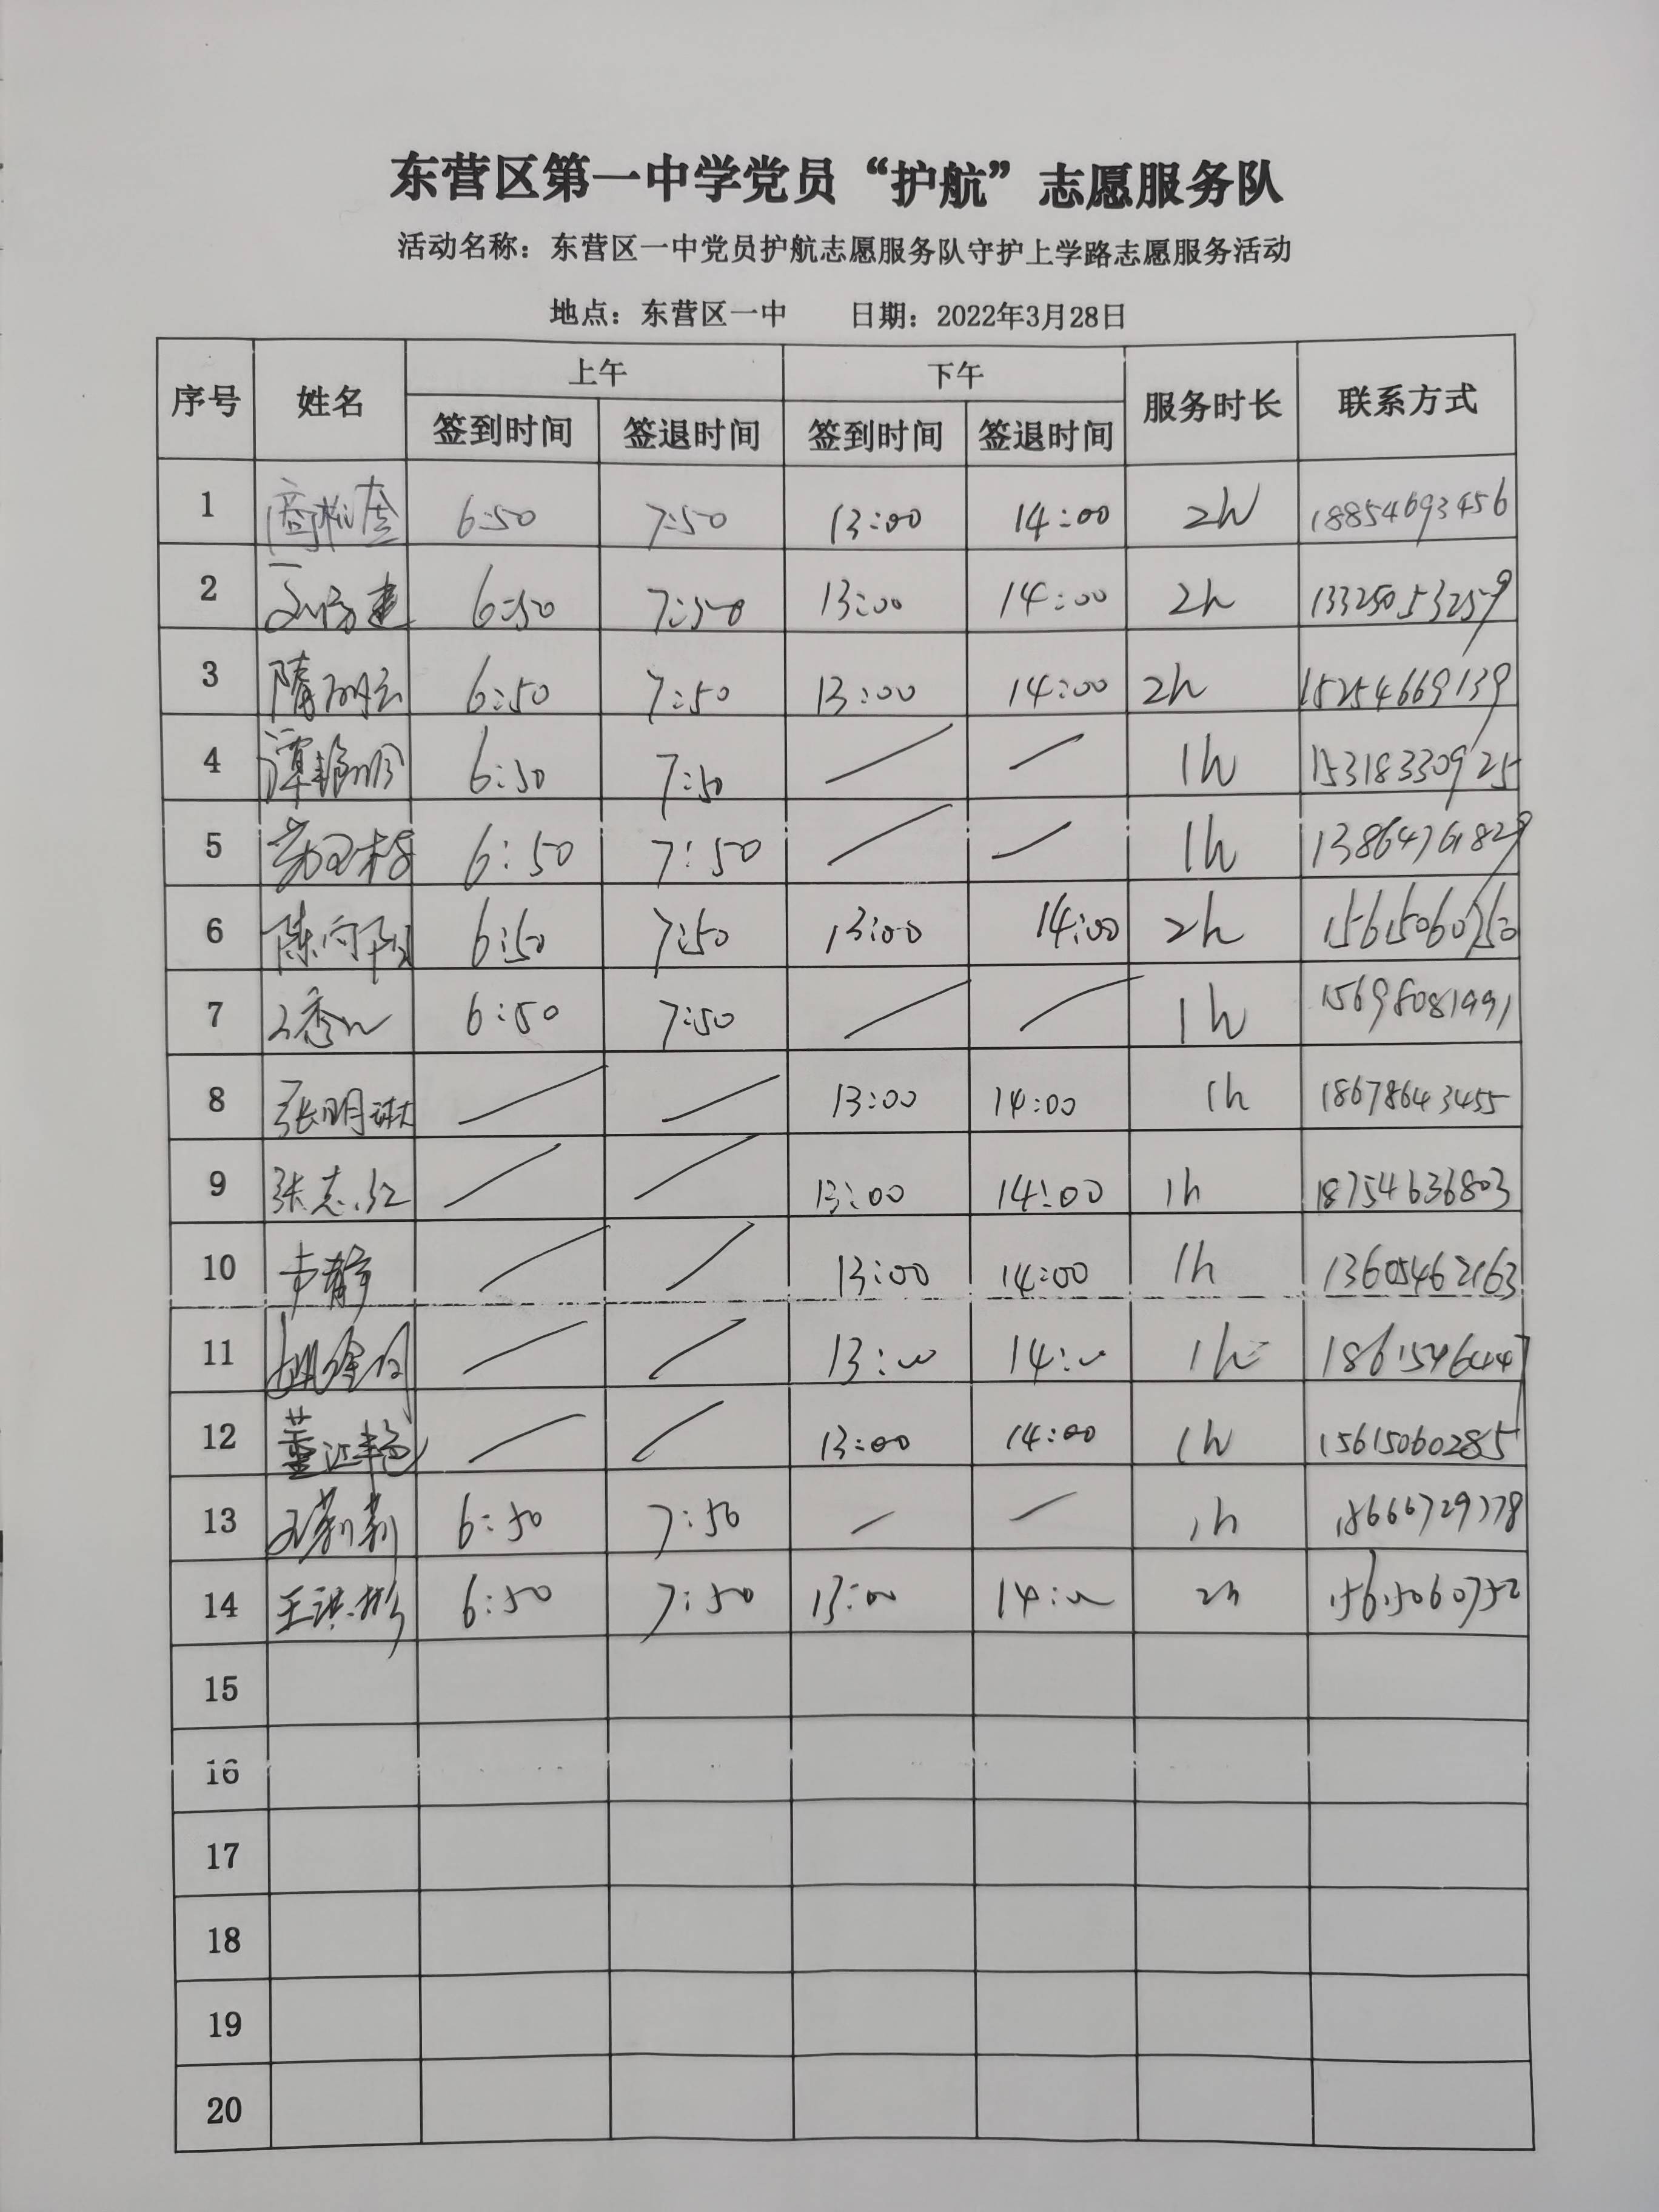 东营区第一中学党员“护航”志愿服务队
活动名称：东营区一中党员护航志愿服务队守护上学路志愿服务活动
地点：东营区一中 日期：2022年3月28日
序号 姓名 上午 下午 服务时长 联系方式
签到时间 签退时间 签到时间 签退时间
1 6:50 7:50 13:00 14:00 2h 18854693456
2 6:50 7:50 13:00 14:00 2h 13325053259
3 6:50 7:50 13:00 14:00 2h 15254669139
4 6:50 7:50 / / 1h 15318330925
5 6:50 7:50 / / 1h
6 陈向阳 6:50 7:50 13:00 14:00 2h 15615060750
7 6:50 7:50 / / 1h 15698081991
8 张明琪 / / 13:00 14:00 1h 18678643455
9 张志红 / / 13:00 14:00 1h 18754636803
10 / / 13:00 14:00 1h 13605462163
11 / / 13:00 14:00 1h 18615496447
12 董延艳 / / 13:00 14:00 1h 15615060285
13 王莉莉 6:50 7:50 / / 1h
14 6:50 7:50 13:00 14:00 2h 15615060752
15
16
17
18
19
20